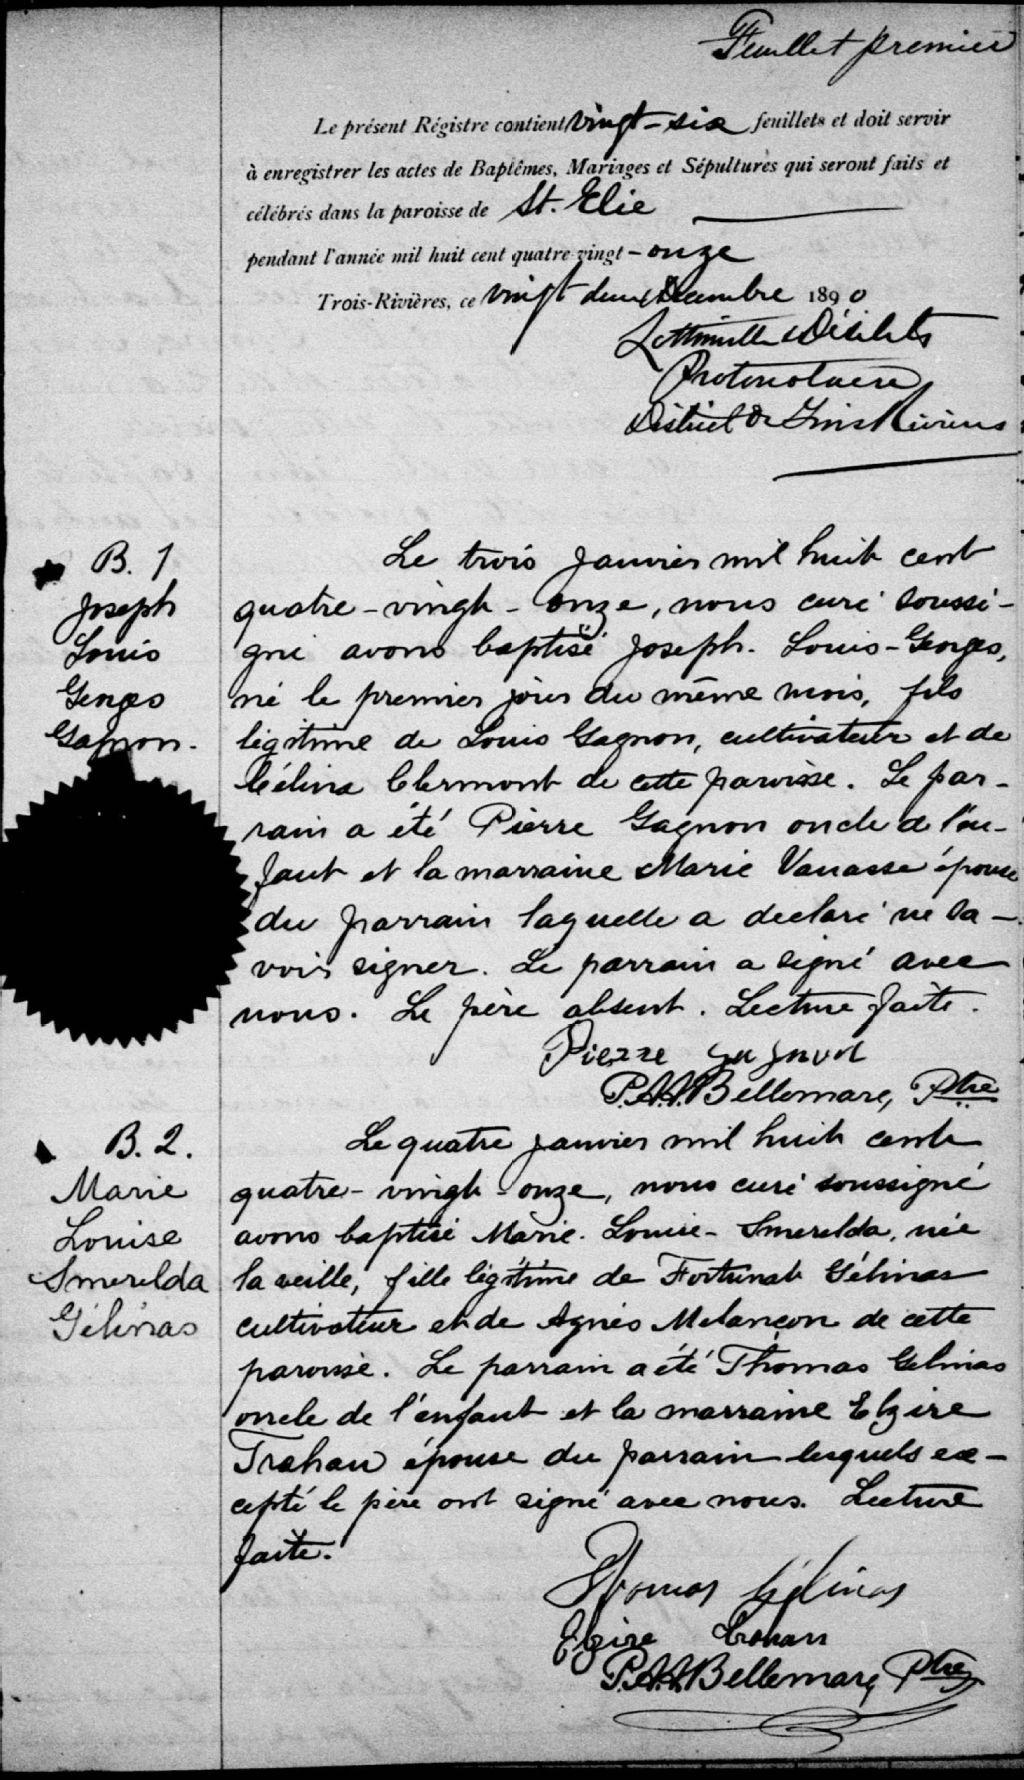 Feuillet premier
Le présent Régistre contient vingt-six feuillets et doit servir
à enregistrer les actes de Baptêmes, Mariages et Sépultures qui seront faits et
célébrés dans la paroisse de St. Elie
pendant l'année mil huit cent quatre-vingt-onze
Trois-Rivières, ce vingt deux Décembre 1890
Désilets
Protonotaire
District de Trois Rivières
B. 1
Joseph
Louis
Georges
Gagnon.
Le trois janvier mil huit cent
quatre-vingt-onze, nous curé soussi-
gné avons baptisé Joseph-Louis-Georges,
né le premier jour du même mois, fils
légitime de Louis Gagnon, cultivateur et de
Célina Clermont de cette paroisse. Le par-
rain a été Pierre Gagnon oncle de l'en-
fant et la marraine Marie Vanasse épouse
du parrain laquelle a declaré ne sa-
voir signer. Le parrain a signé avec
nous. Le père absent. Lecture faite.
Pierre gagnon
P.A.A. Bellemare, Ptre
B. 2.
Marie
Louise
Smerelda
Gélinas
Le quatre janvier mil huit cent
quatre-vingt-onze, nous curé soussigné
avons baptisé Marie-Louise-Smerelda, née
la veille, fille légitime de Fortunat Gélinas
cultivateur et de Agnès Melançon de cette
paroisse. Le parrain a été Thomas Gelinas
oncle de l'enfant et la marraine Elzire
Trahan épouse du parrain lesquels ex-
cepté le père ont signé avec nous. Lecture
faite.
Thomas Gélinas
Elzire Trahan
P.A.A. Bellemare, Ptre